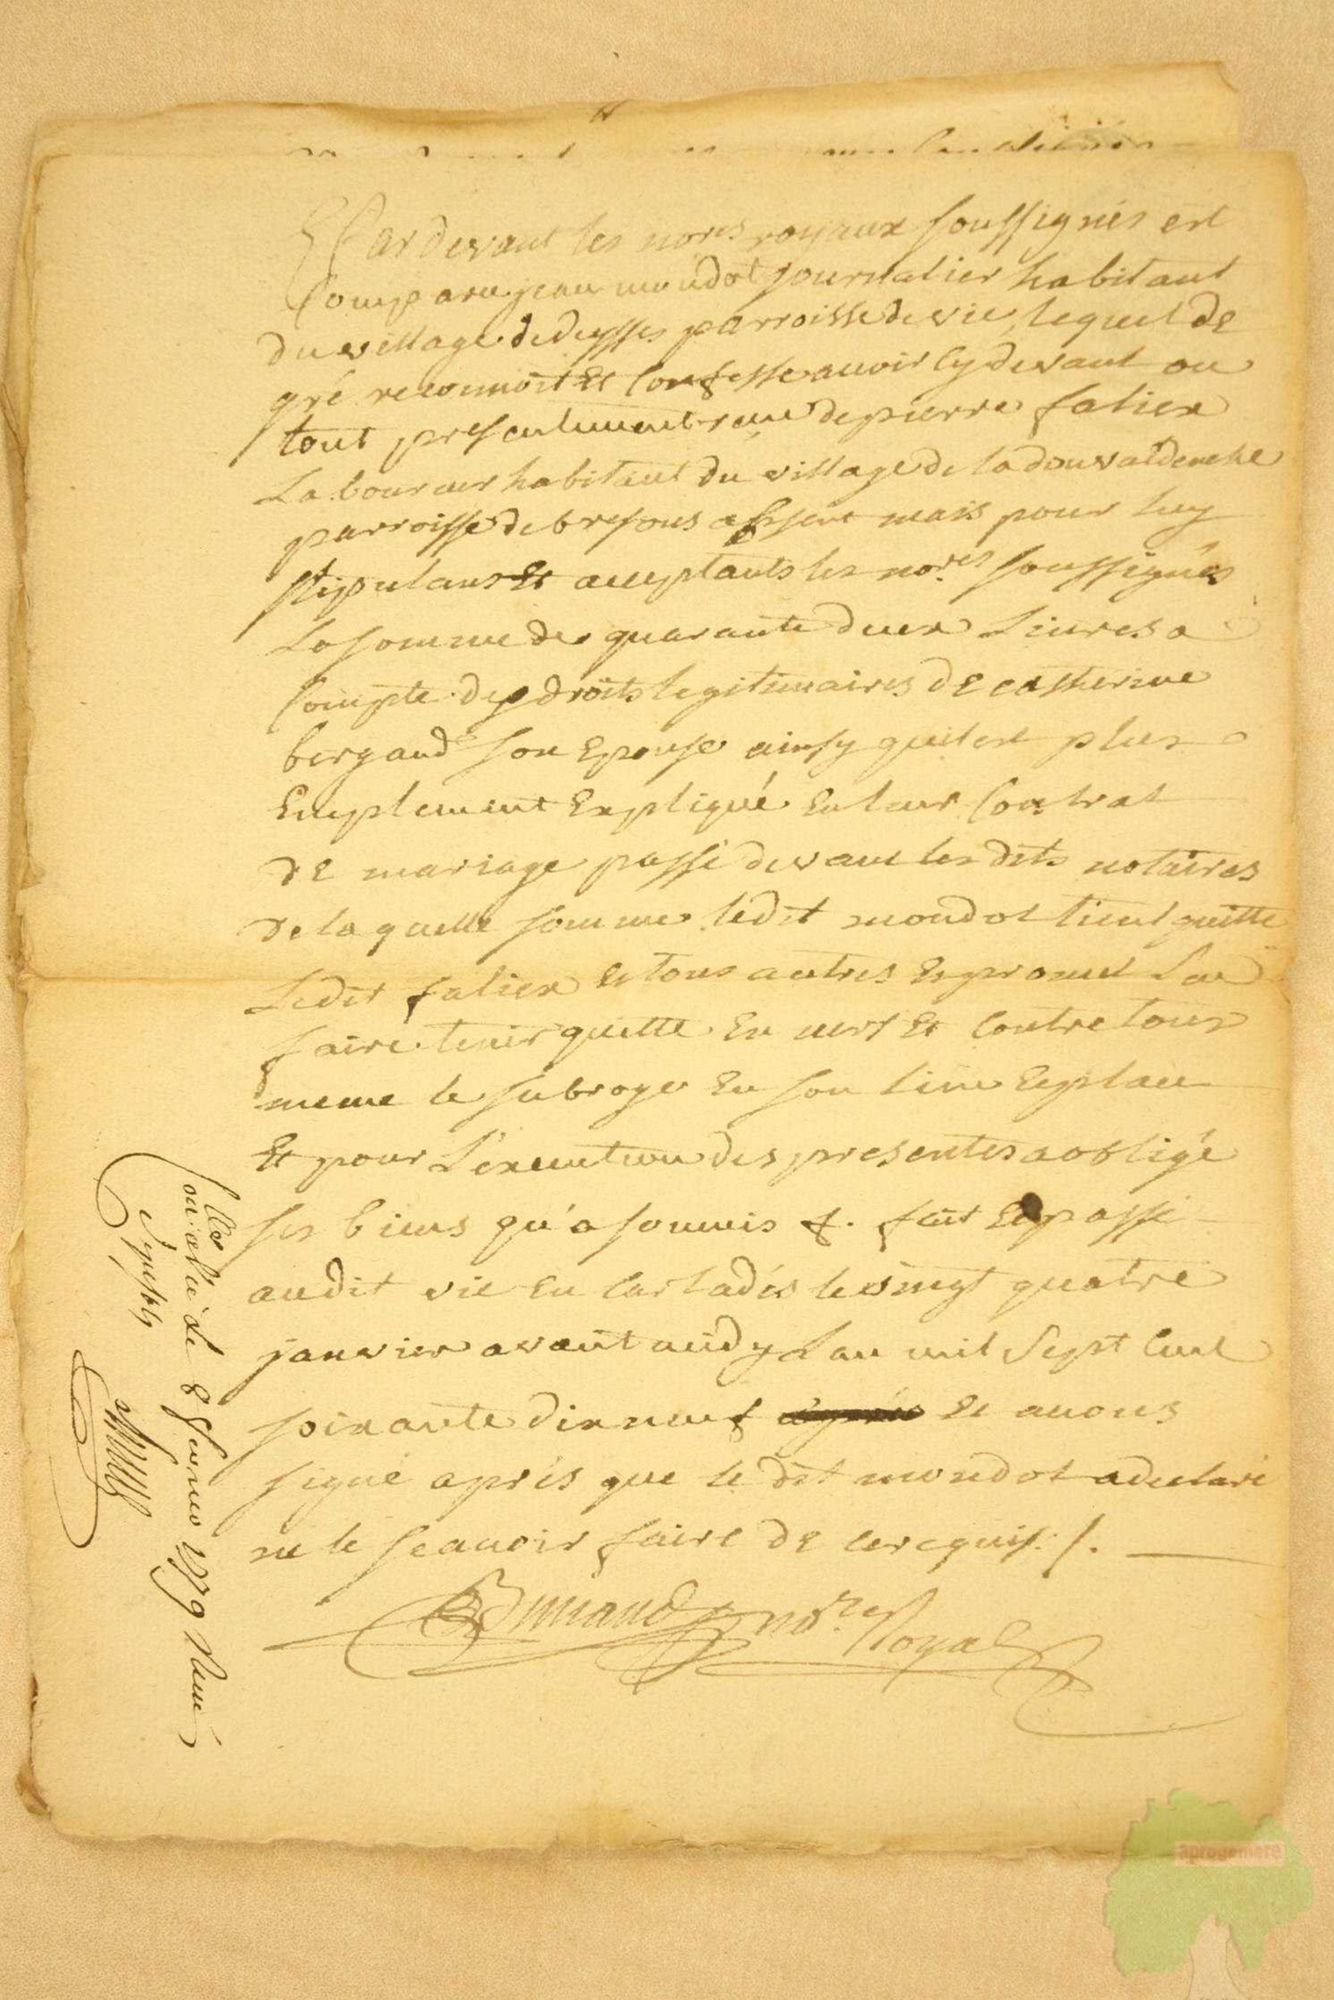 Pardevant les no.res royaux soussignés est
Comparu jean mondot journalier habitant
du village de deysses parroisse de vic, lequel de
gré reconnoit et confesse avoir cy devant ou
tout presentement reçu de pierre faliex
Laboureur habitant du village de
parroisse de bresons absent mais pour luy
stipulans et acceptants les no.res soussignés
La somme de quarante deux Livres a
Compte des droits legitimaires de catherine
bergaud son Epouse ainsy quil est plus
Emplement Expliqué En leur Contrat
de mariage passé devant les dits notaires
de laquelle somme ledit mondot tient quitte
Ledit faliex et tous autres et promet L'en
faire tenir quitte En vers et Contre tous
meme le subroge En son lieu et place
Et pour L'execution des presentes a obligé
ses biens qu'a soumis &. fait et passé
audit vic En Carladés le vingt quatre
janvier avant midy L'an mil Sept Cent
soixante dix neuf et avons
signé aprés que le dit mondot a declaré
ne le sçavoir faire de ce requis ./.
no.re Royal
Con.ollé à le 8 fevrier 1779 Reçu